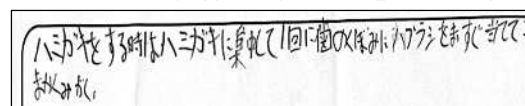 ハミガキをする時はハミガキに集中して1回に歯のくぼみにハブラシをまっすぐ当てて
まくみがく。